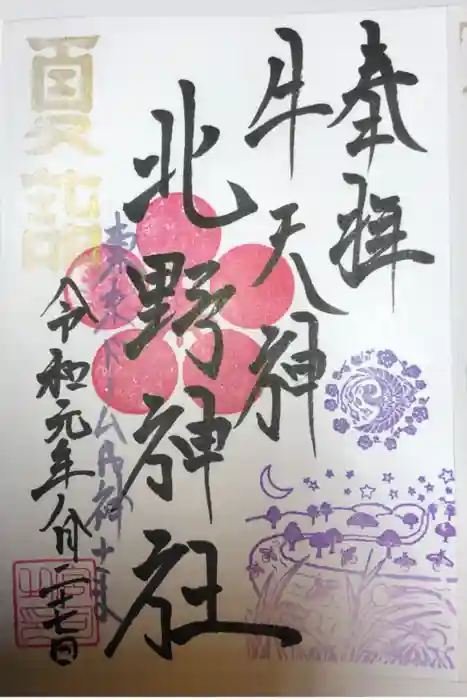 奉拝
牛天神
北野神社
東京ドーム内神社
令和元年八月二十七日
夏詣